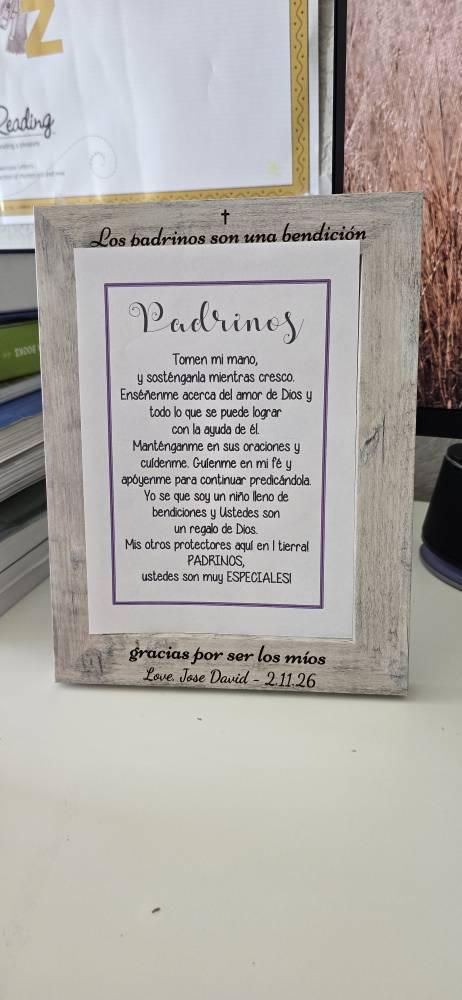 Z
Reading
✝
Los padrinos son una bendición
Padrinos
Tomen mi mano,
y sosténganla mientras cresco.
Enséñenme acerca del amor de Dios y
todo lo que se puede lograr
con la ayuda de él.
Manténganme en sus oraciones y
cuídenme. Guíenme en mi fé y
apóyenme para continuar predicándola.
Yo se que soy un niño lleno de
bendiciones y Ustedes son
un regalo de Dios.
Mis otros protectores aquí en l tierra!
PADRINOS,
ustedes son muy ESPECIALES!
gracias por ser los míos
Love, Jose David - 2.11.26